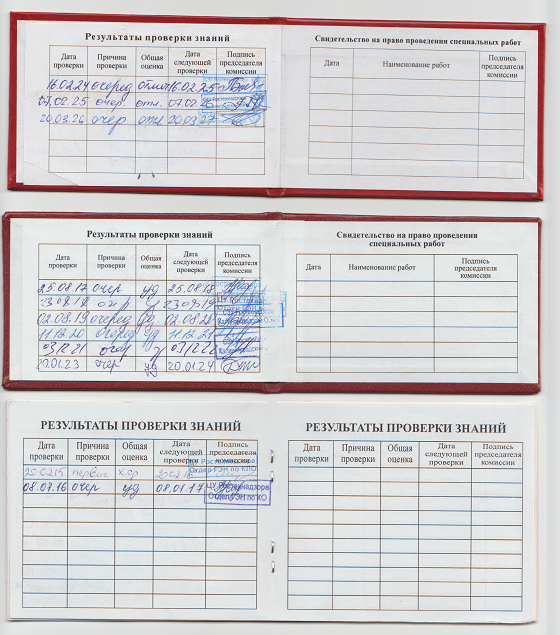 Результаты проверки знаний
Дата проверки Причина проверки Общая оценка Дата следующей проверки Подпись председателя комиссии
16.02.24 очеред отл 16.02.25
07.02.25 очер отл. 07.02.26
20.03.26 очер отл 20.03.27
Свидетельство на право проведения специальных работ
Дата Наименование работ Подпись председателя комиссии
Результаты проверки знаний
Дата проверки Причина проверки Общая оценка Дата следующей проверки Подпись председателя комиссии
25.08.17 очер уд 25.08.18
02.08.19 очеред 02.08.20
11.12.20 очеред уд 11.12.21
03.12.21 очер
20.01.23 очер уд 20.01.24
Свидетельство на право проведения
специальных работ
Дата Наименование работ Подпись председателя комиссии
РЕЗУЛЬТАТЫ ПРОВЕРКИ ЗНАНИЙ
Дата проверки Причина проверки Общая оценка Дата следующей проверки Подпись председателя комиссии
первич хор
Отдел ГЭН по КО
08.07.16 очер уд 08.08.17
ЦУ Ростехнадзора
Отдел ГЭН по КО
РЕЗУЛЬТАТЫ ПРОВЕРКИ ЗНАНИЙ
Дата проверки Причина проверки Общая оценка Дата следующей проверки Подпись председателя комиссии